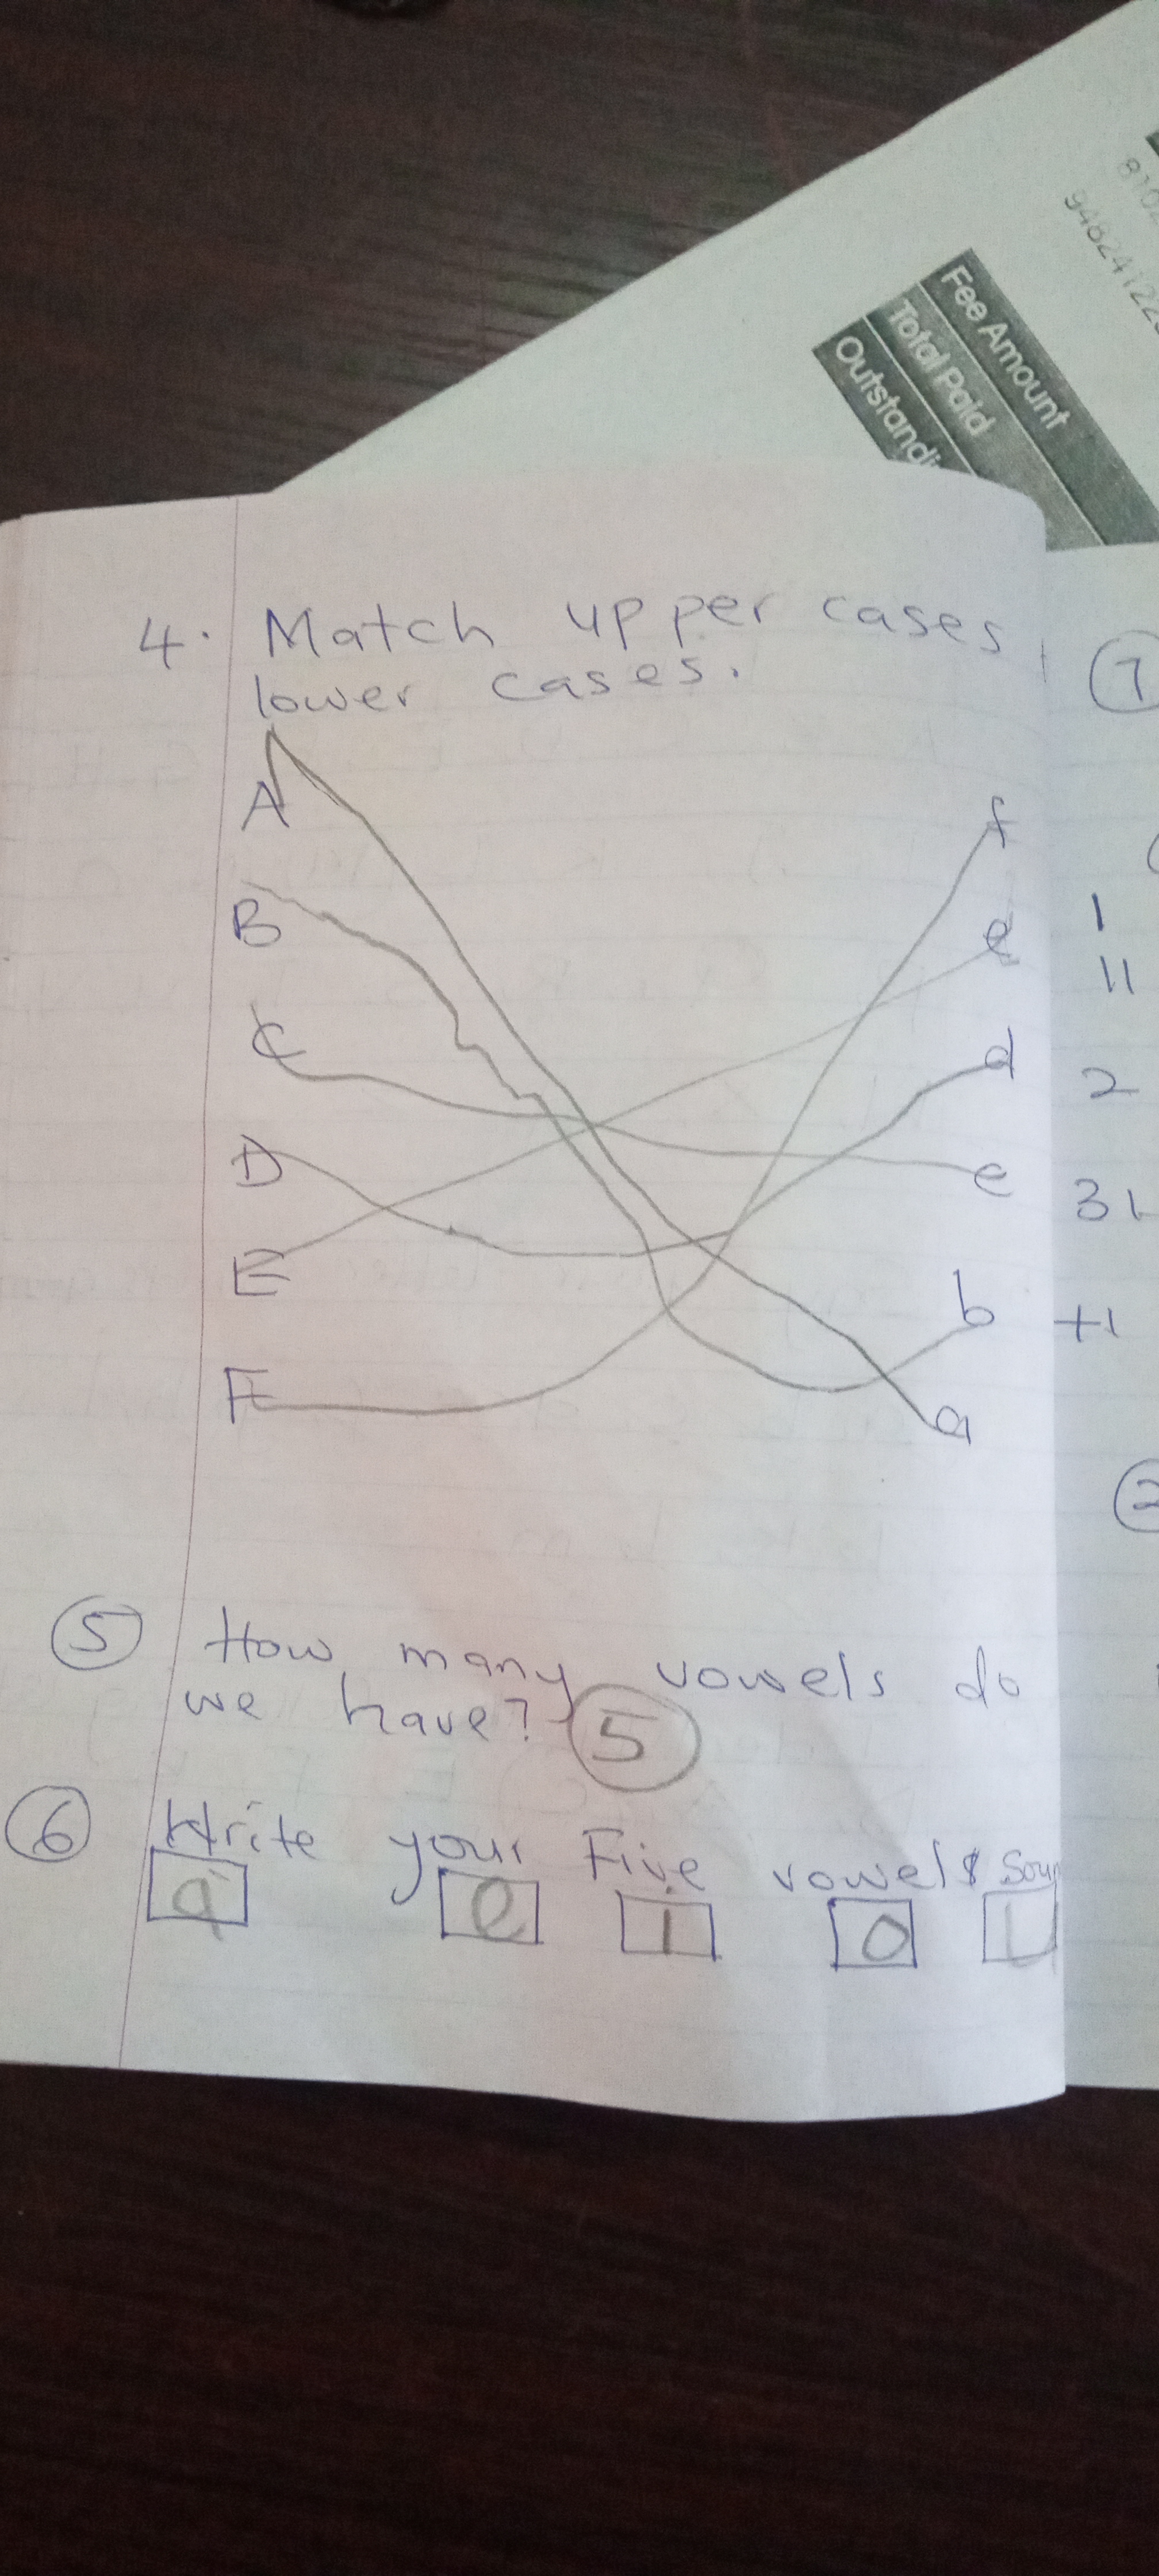 8102
9482412220
Fee Amount
Total Paid
4. Match upper cases
lower cases.
A f
B e
C d
D c
E b
F a
⑤ How many vowels do
we have? ⑤
⑥ Write your Five vowels
a e i o u
⑦
1
11
2
31
+1